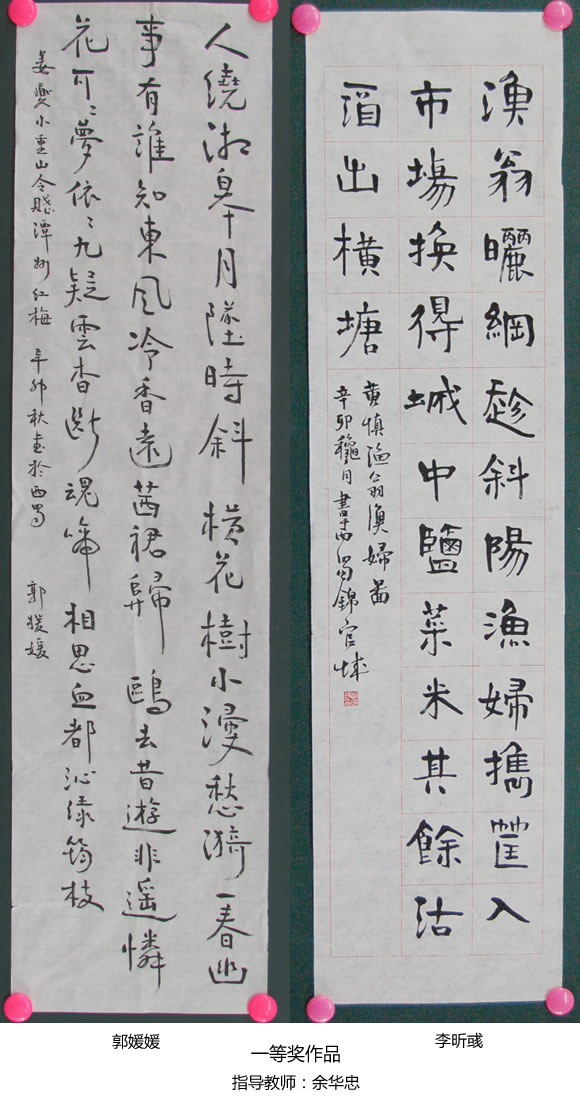 漁翁曬網趁斜陽漁婦攜筐入
市場換得城中鹽菜米其餘沽
酒出橫塘
黄慎漁翁漁婦圖
辛卯龝月書西蜀錦官城
人繞湘皋月墜時斜橫花樹小漫愁漪一春幽
事有誰知東風冷香遠茜裙歸鷗去昔遊非遙憐
花可々夢依々九疑雲杳斷魂啼相思血都沁綠筠枝
姜夔小重山令賦潭州紅梅 辛卯秋書於西蜀 郭媛媛
郭媛媛
李昕彧
一等奖作品
指导教师：余华忠